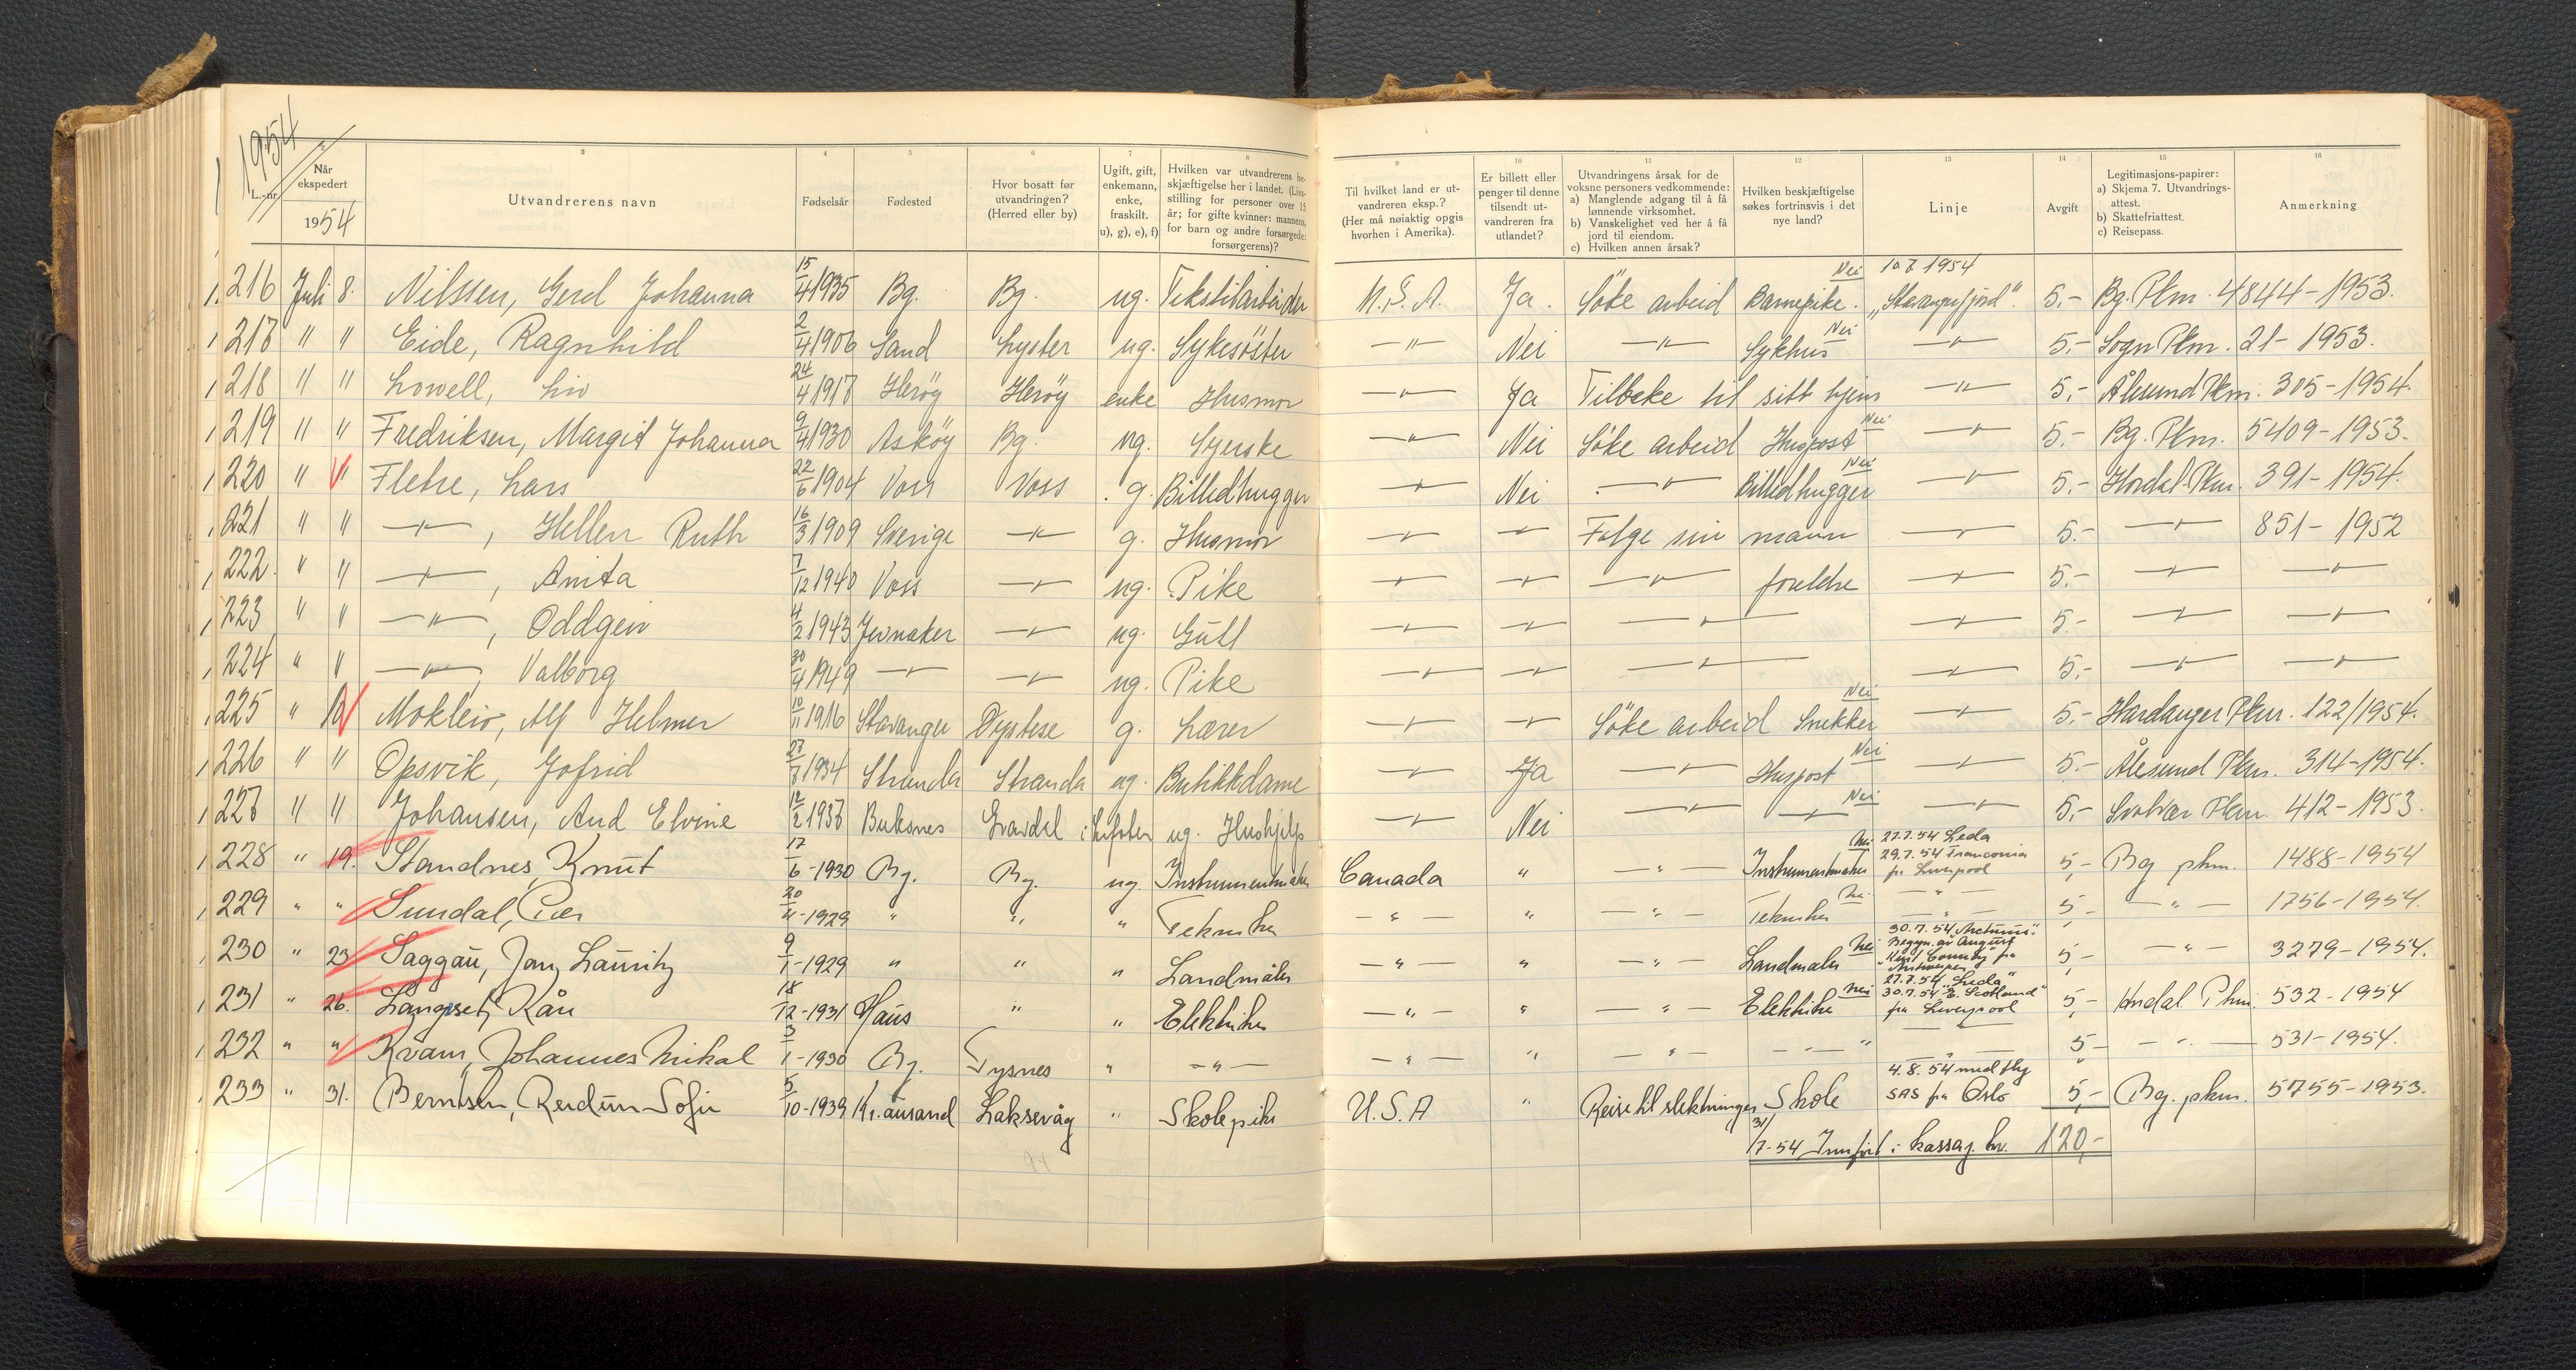 1954
1 2 3 4 5 6 7 8 9 10 11 12 13 14 15 16
L.-nr. Når ekspedert 1954 Utvandrerens navn Fødselsår Fødested Hvor bosatt før utvandringen? (Herred eller by) Ugift, gift, enkemann, enke, fraskilt. u), g), e), f) Hvilken var utvandrerens beskjæftigelse her i landet. (Livsstilling for personer over 15 år; for gifte kvinner: mannens, for barn og andre forsørgede: forsørgerens)? Til hvilket land er utvandreren eksp.? (Her må nøiaktig opgis hvorhen i Amerika). Er billett eller penger til denne tilsendt utvandreren fra utlandet? Utvandringens årsak for de voksne personers vedkommende: a) Manglende adgang til å få lønnende virksomhet. b) Vanskelighet ved her å få jord til eiendom. c) Hvilken annen årsak? Hvilken beskjæftigelse søkes fortrinsvis i det nye land? Linje Avgift Legitimasjons-papirer: a) Skjema 7. Utvandringsattest. b) Skattefriattest. c) Reisepass. Anmerkning
216 Juli 8. Nilssen, Gerd Johanna 15/4 1935 Bg. Bg. ug. Tekstilarbeider U.S.A. Ja. Söke arbeid Barnepike. Nei 10.7.1954 "Stavangerfjord". 5,- Bg. Pkm. 4844-1953.
217 " " Eide, Ragnhild 2/4 1906 Sand Lyster ug. Sykesöster —"— Nei —"— Sykhus Nei —"— 5,- Sogn Pkm. 21-1953.
218 " " Lowell, Liv 24/4 1917 Heröy Heröy enke Husmor —"— Ja Tilbake til sitt hjem —"— 5,- Ålesund Pkm. 305-1954.
219 " " Fredriksen, Margit Johanna 9/4 1930 Asköy Bg. ug. Syerske —"— Nei Söke arbeid Huspost Nei —"— 5,- Bg. Pkm. 5409-1953.
220 " " Fletre, Lars 22/6 1904 Voss Voss g. Billedhugger —"— Nei —"— Billedhugger Nei —"— 5,- Hordal. Pkm. 391-1954.
221 " " —"—, Hellen Ruth 16/3 1909 Sverige —"— g. Husmor —"— —"— Følge sin mann —"— 5.- —"— 851-1952
222. " " —"—, Anita 7/12 1940 Voss —"— ug. Pike —"— —"— —"— foreldre —"— 5.- —"— —"—
223 " " —"—, Oddgeir 4/2 1943 Jevnaker —"— ug. Gutt —"— —"— —"— —"— 5.- —"— —"—
224 " " —"— Valborg 30/4 1949 —"— —"— ug. Pike —"— —"— —"— —"— 5,- —"— —"—
225 " Mokleiv, Alf Helmer 10/11 1916 Stavanger Öystese g. Lærer —"— —"— Söke arbeid Snekker Nei —"— 5,- Hardanger Pkm. 122/1954.
226 " " Opsvik, Jofrid 1934 Stranda Stranda ug. Butikkdame —"— Ja —"— Huspost Nei —"— 5.- Ålesund Pkm. 314-1954.
227 " " Johansen, Aud Elvine 12/2 1937 Buksnes Gravdal i Lofoten ug. Hushjelp —"— Nei —"— —"— Nei —"— 5,- Svolvær Pkm. 412-1953.
228 " 19. Standnes, Knut 17/6-1930 Bg. Bg. ug. Instrumentmaker Canada " —"— Instrumentmaker Nei 27.7.54 Leda 29.7.54 Franconia fra Liverpool 5,- Bg pkm. 1488-1954
229 " " Sundal, Per 20/4-1929 " " " Tekniker —"— " —"— Tekniker Nei —"— 5,- —"— 1756-1954.
230 " 23. Saggau, Jan Lauritz 9/1-1929 " " " Landmåler —"— " —"— Landmåler Nei 30.7.54 Begyn. av August fra Antwerpen 5,- —"— 3279-1954.
231 " 26. Langeset, Kåre 18/12-1931 Haus " " Elektriker —"— " —"— Elektriker Nei 27.7.54 "Leda" 30.7.54 E. Scotland" fra Liverpool 5,- Hordal. Pkm. 532-1954
232 " " Kvam, Johannes Mikal 3/1-1930 Bg. Tysnes " —"— —"— " —"— —"— —"— 5,- —"— 531-1954.
233 " 31. Berntsen, Reidun Sofie 5/10-1939 Kr.ausand Laksevåg " Skolepike U.S.A " Reise til slektninger Skole 4.8.54 med fly SAS fra Oslo 5,- Bg. pkm. 5755-1953.
31/7-54 Innført i kassaj. kr. 120,-